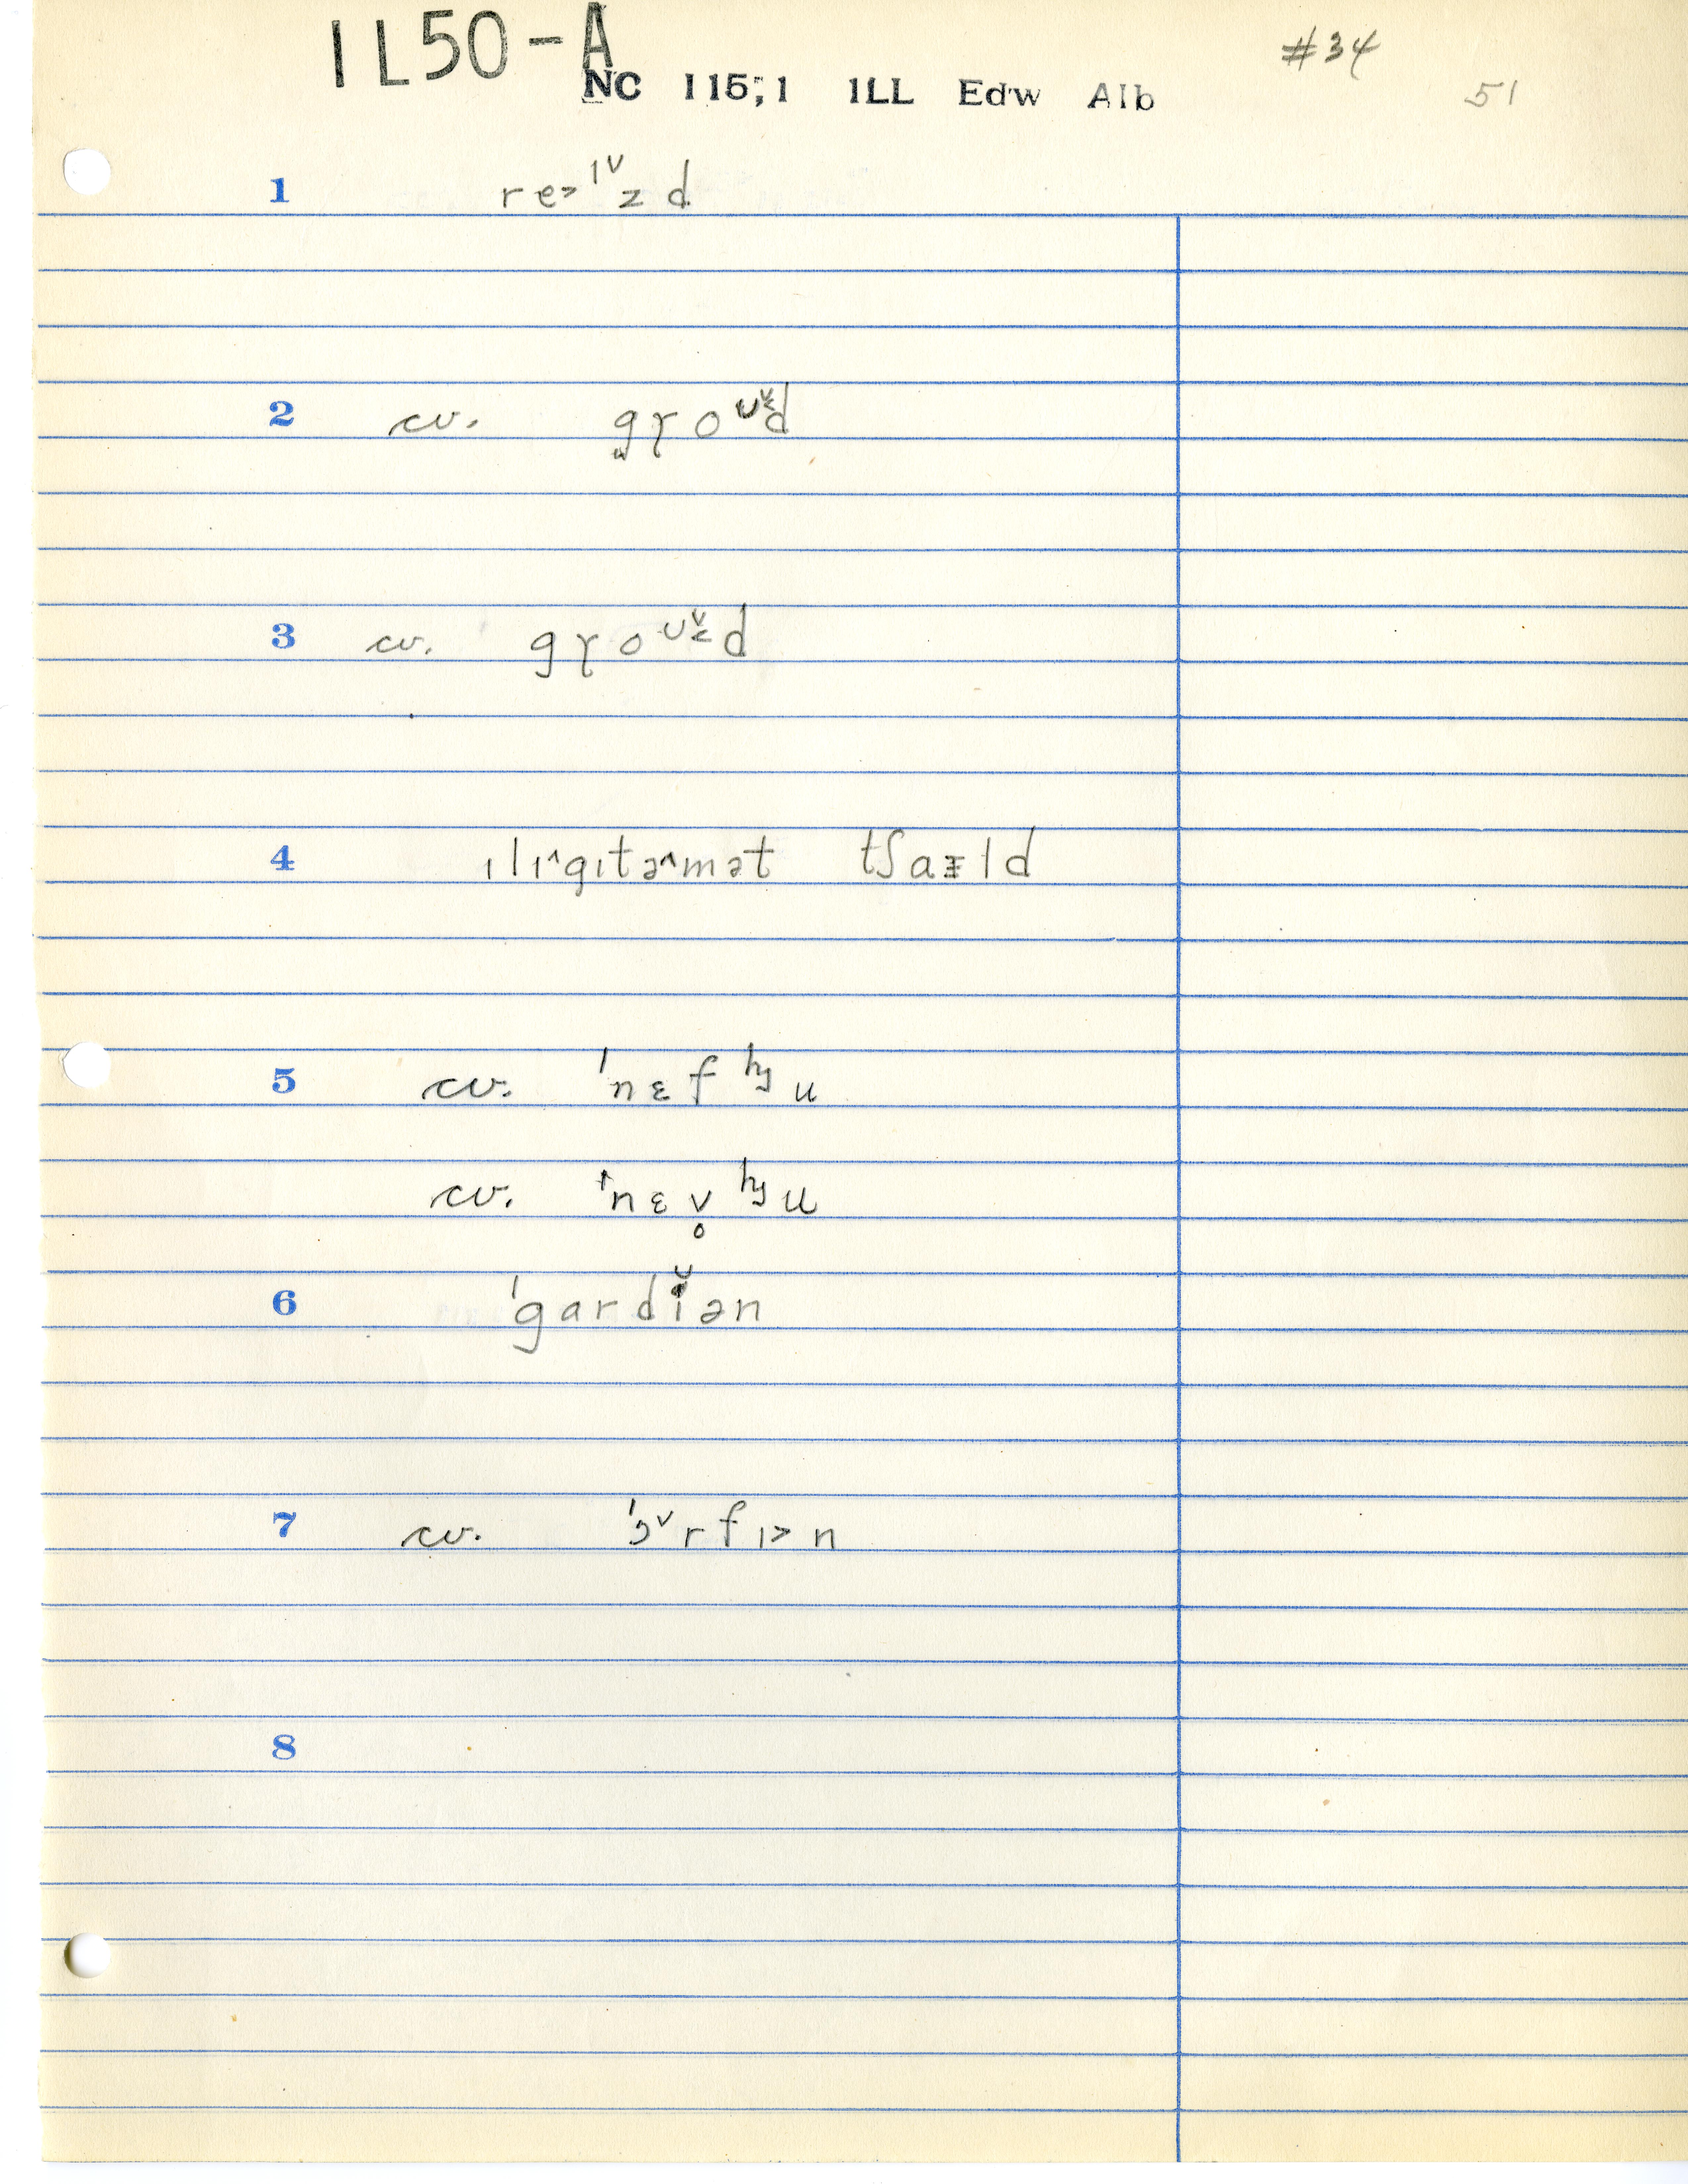 IL50-A
#34
NC 115;1 ILL Edw Alb
51
1 re˃ᶦ˅zd
2 cv. gɤoᶷ˅˂d
3 cv. gɤoᶷ˅˂d
4 ɪlɪ^gɪtə^mət tʃaɪld
5 cv. ˈnɛfʰʲu
cv. ˈnɛv̥ʰʲu
6 ˈgardi˅ən
7 cv. ˈɔ˅rfɪ˃n
8